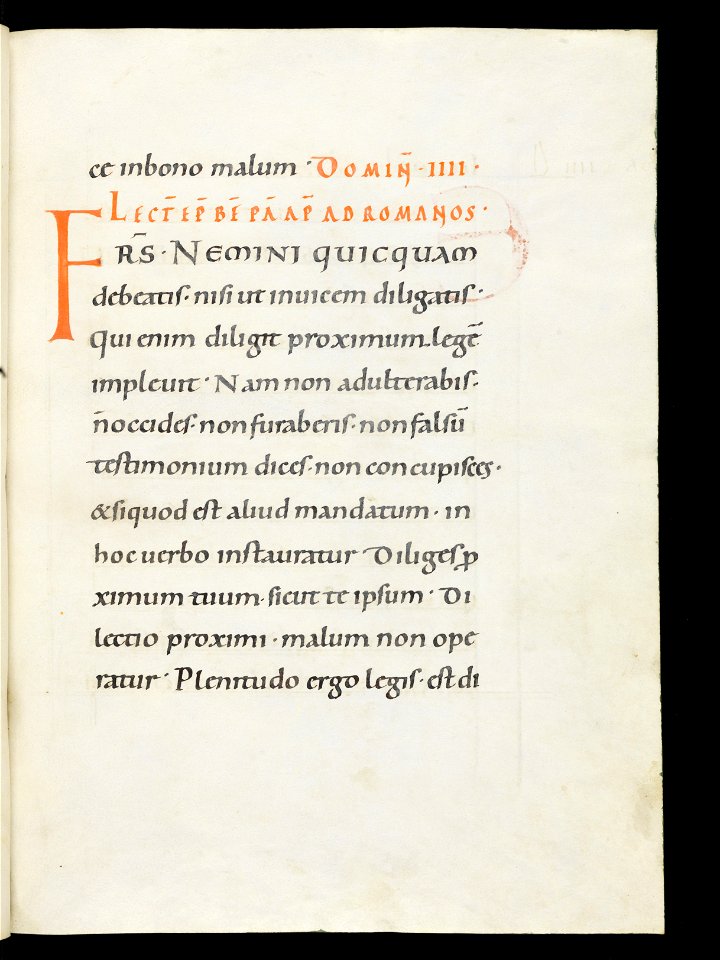 ce inbono malum · Domiñ · IIII ·
Lect̄ ep̄ b̄e p̄a ap̄ ad romanos ·
FR̄S · Nemini quicquam
debeatis · nisi ut inuicem diligatis ·
Qui enim diligit proximum · legē
impleuit · Nam non adulterabis ·
ñ occides · non furaberis · non falsū
testimonium dices · non concupisces ·
& siquod est aliud mandatum · in
hoc uerbo instauratur Diliges ꝓ
ximum tuum · sicut te ipsum · Di
lectio proximi · malum non ope
ratur · Plenitudo ergo legis · est di